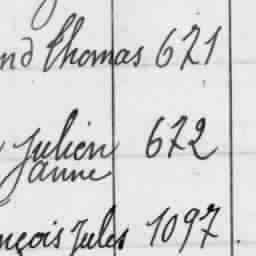 nd Thomas 621
Julien 672
Janne
nçois Jules 1097